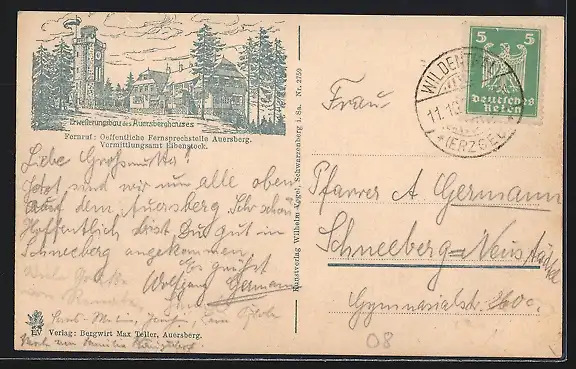 Erweiterungsbau des Auersberghauses
Fernruf: Oeffentliche Fernsprechstelle Auersberg.
Vermittlungsamt Eibenstock.
Liebe Großmutter!
Jetzt sind wir nun alle oben
auf dem Auersberg. Sehr schön
Hoffentlich bist Du gut in
Schneeberg angekommen.
Es grüßt
Wolfgang Germann
Viele Grüße
EV Verlag: Bergwirt Max Teller, Auersberg.
Kunstverlag Wilhelm Vogel, Schwarzenberg i. Sa. Nr. 2759
5 5
Deutsches
Reich
WILDENTHAL
11.10
(ERZGEB.)
Frau
Pfarrer A Germann
Schneeberg=Neustädtel
Gymnasialstr.
08